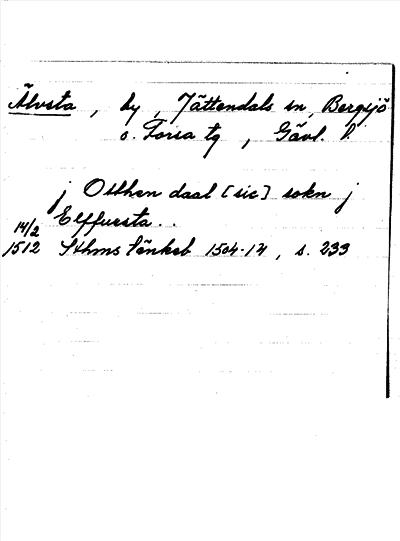 Älvsta, by, Jättendals sn, Bergsjö
o. Forsa tg, Gävl. l.
j Otthen daal [sic] sokn j
Elffuesta..
14/2
1512 Sthms tänkeb 1504-14, s. 233